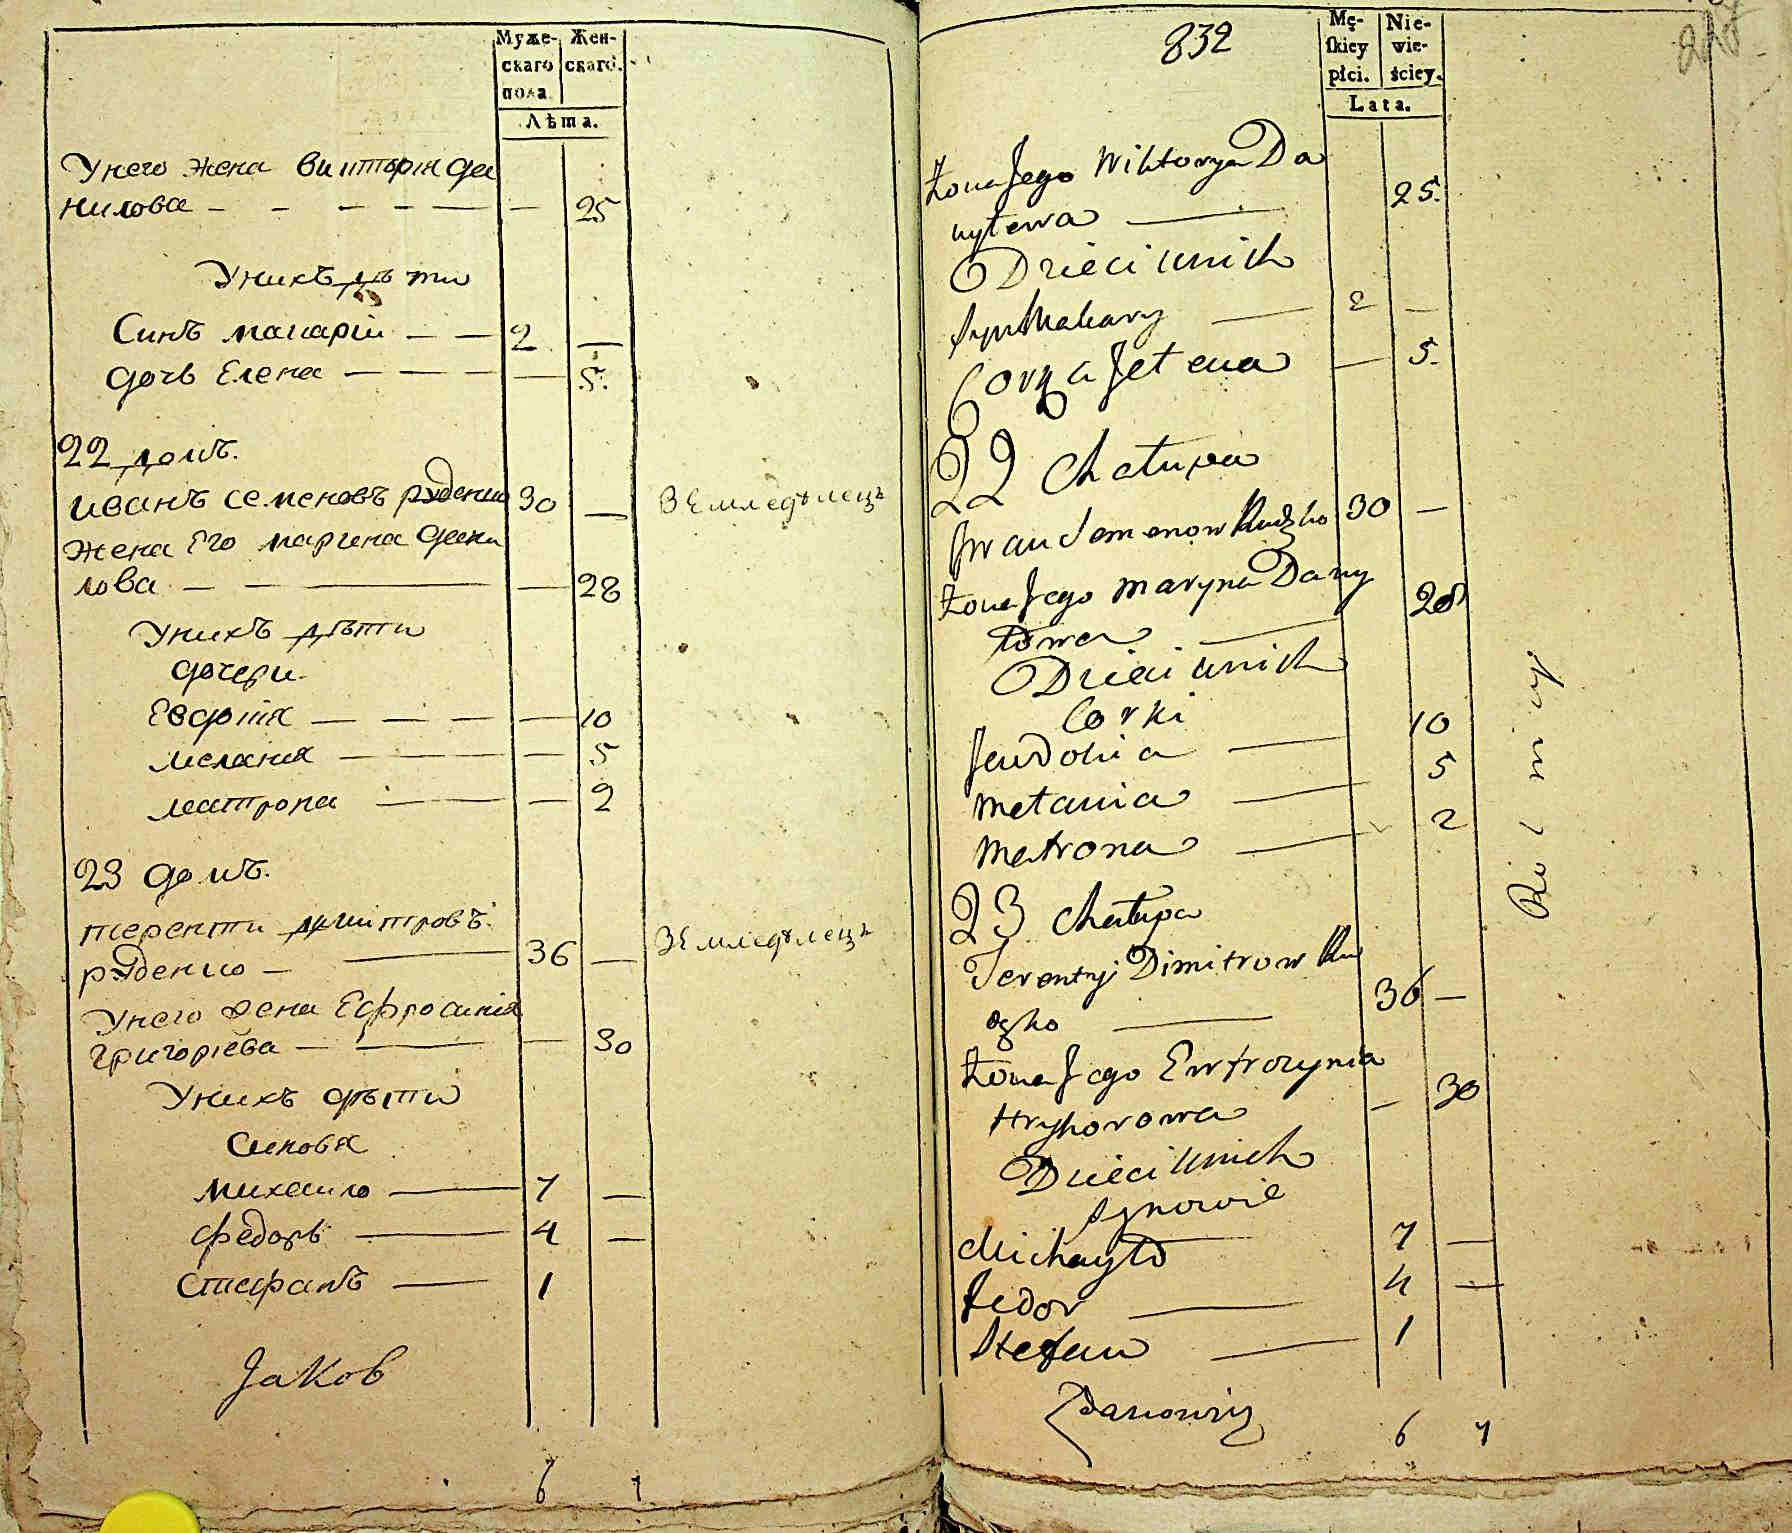 Муже-
скаго
пола.
Жен-
скаго.
Лѣта.
Унего жена викторія да
нилова — 25
Унихъ дѣти
Синъ макарій — 2 —
дочь Елена — 5.
22 домъ.
иванъ семеновъ рудзко 30 — Земледѣлецъ
жена Его марина дани
лова — 28
Унихъ дѣти
дочери.
Евдокія — 10
мелания — 5
матрона — 2
23 домъ.
терентий димитровъ
рудзко — 36 — Земледѣлецъ
Унего жена Ефросинія
григоріева — 30
Унихъ дѣти
синовя
михаило — 7 —
федоръ — 4 —
стефанъ — 1
Jakob
6 7
832
Mę-
skiey
płci.
Nie-
wie-
ściey.
Lata.
Żona Jego Wiktorya Da
nyłowa — 25.
Dzieci unich
syn Makary — 2 —
Corka Jelena — 5.
22 Chałupa
Iwan Semenow Rudzko 30 —
Żona Jego Maryna Dany
łowa — 28
Dzieci unich
Corki
Jewdokia — 10
Melania — 5
Matrona — 2
23 Chałupa
Terentyi Dimitrow Ru
dzko — 36 —
Żona Jego Ewfrozynia
Hryhorowa — 30
Dzieci unich
synowie
Michayło 7 —
Fedor — 4 —
Stefan — 1
6 7